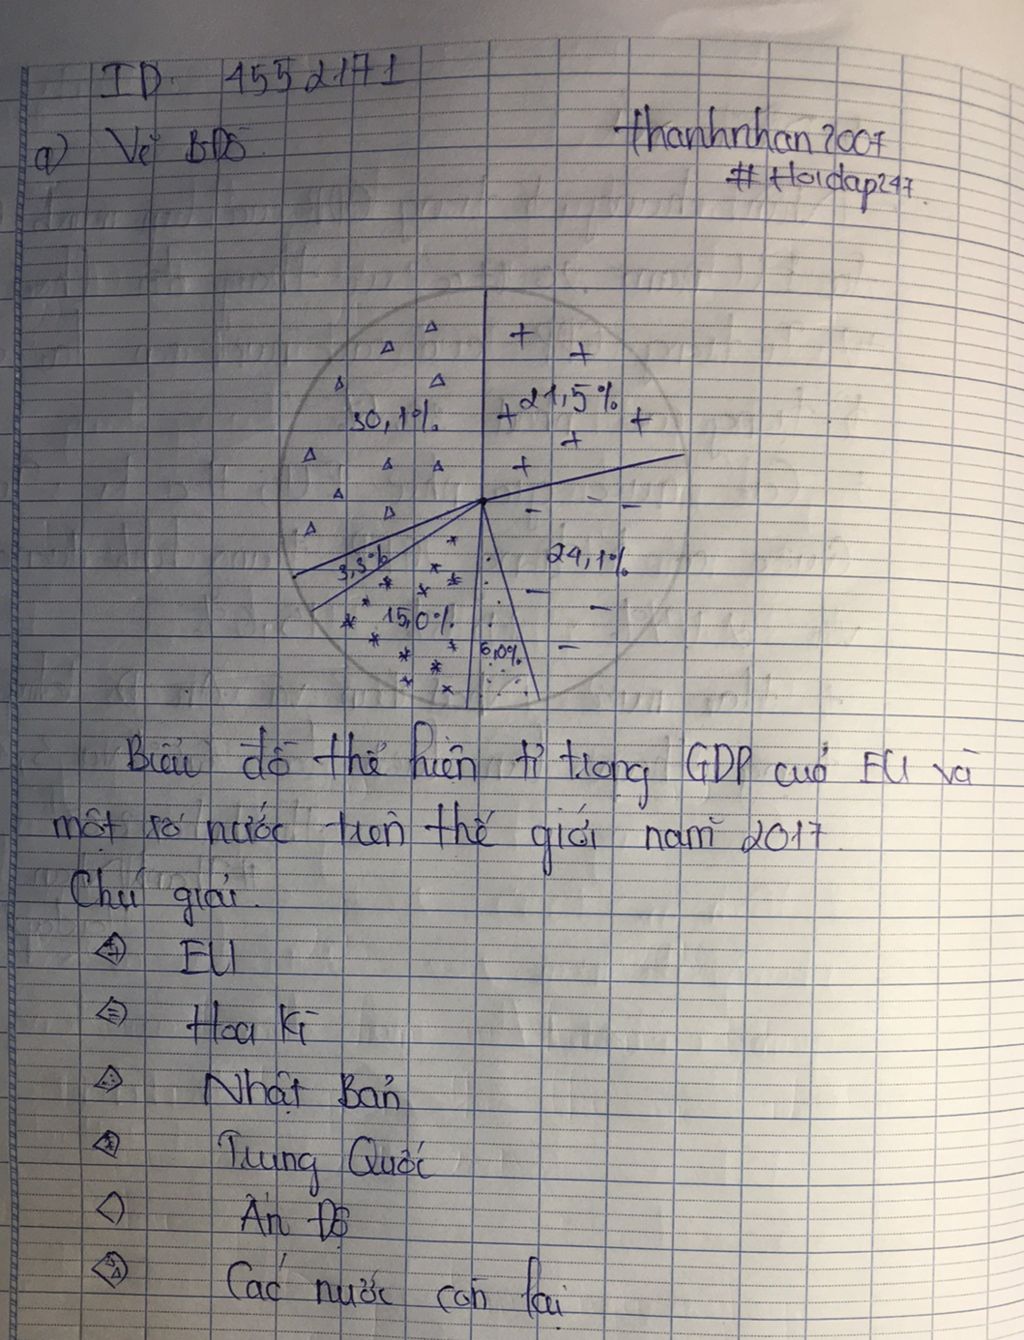 ID: 4552171
a) Vẽ BĐ
thanhnhan2007
# Hoidap247.
30,1%
21,5%
24,1%
3,3%
15,0%
6,0%
Biểu đồ thể hiện tỉ trọng GDP của EU và
một số nước trên thế giới năm 2017.
Chú giải.
EU
Hoa Kì
Nhật Bản
Trung Quốc
Ấn Độ
Các nước còn lại